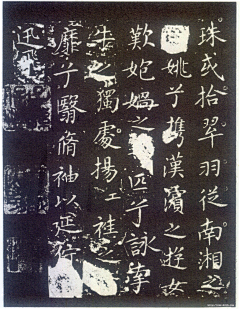 珠或拾翠羽從南湘之
姚兮攜漢濱之遊女
歎媧之匹兮詠牽
牛之獨處揚袿之
靡兮翳脩袖以延佇
迅